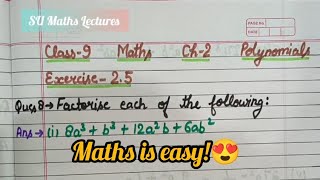 SU Maths Lectures
PAGE NO.
DATE
Class-9 Maths Ch-2 Polynomials
Exercise-2.5
Ques 8→ Factorise each of the following:
Ans→ (i) 8a³ + b³ + 12a²b + 6ab²
Maths is easy!😍